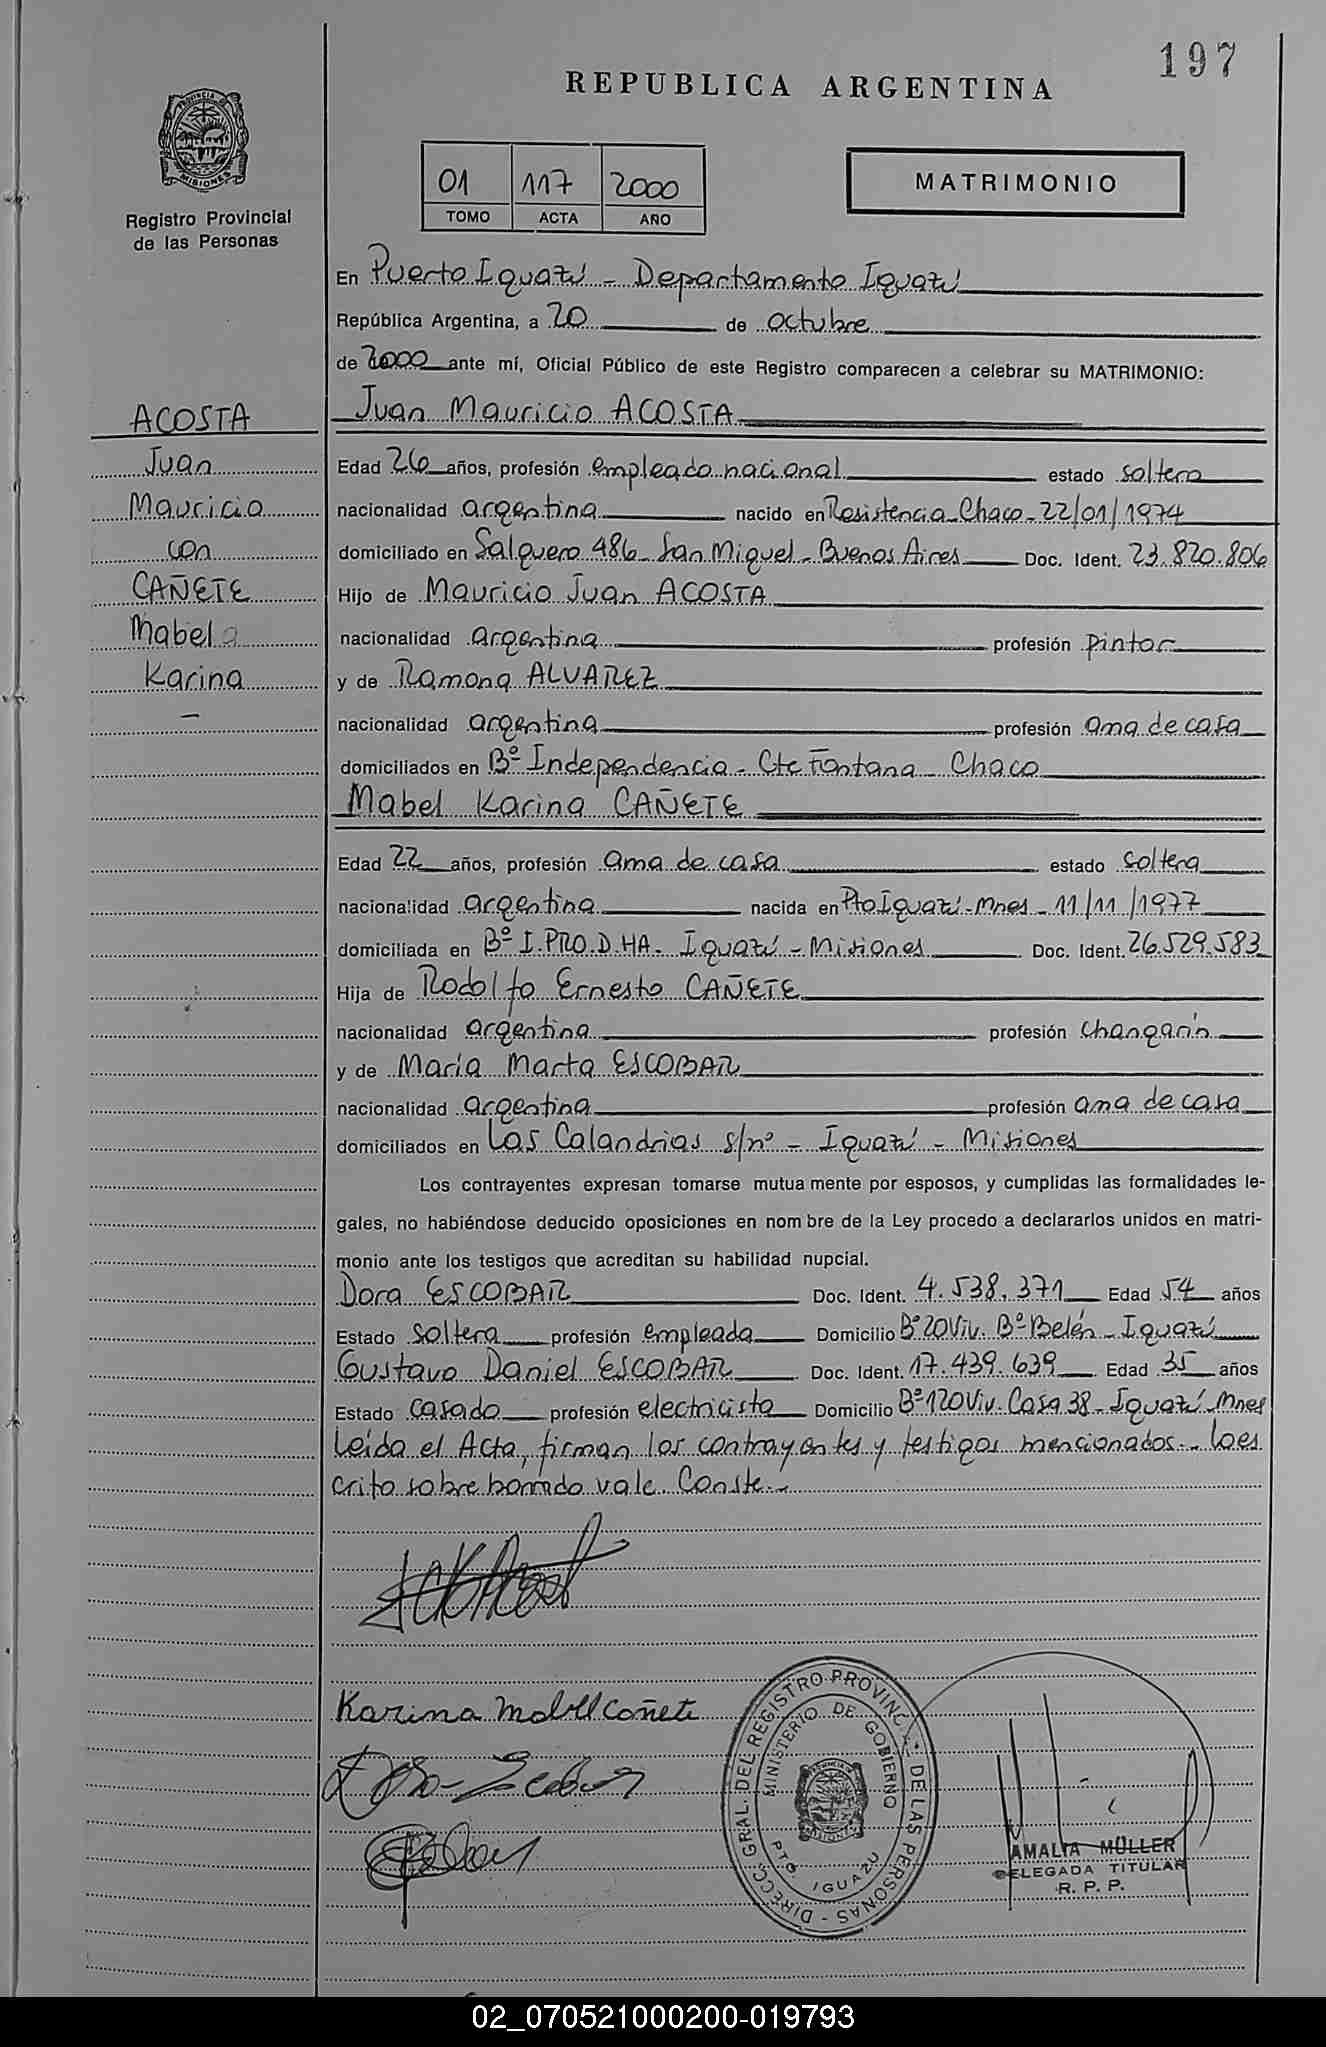 197
REPUBLICA ARGENTINA
PROVINCIA DE MISIONES
Registro Provincial
de las Personas
01 117 2000
TOMO ACTA AÑO
MATRIMONIO
En Puerto Iguazú - Departamento Iguazú
República Argentina, a 20 de octubre
de 2000 ante mí, Oficial Público de este Registro comparecen a celebrar su MATRIMONIO:
ACOSTA
Juan
Mauricio
con
CAÑETE
Mabel
Karina
Juan Mauricio ACOSTA
Edad 26 años, profesión empleado nacional estado soltero
nacionalidad argentina nacido en Resistencia - Chaco - 22/01/1974
domiciliado en Salguero 486 - San Miguel - Buenos Aires Doc. Ident. 23.820.806
Hijo de Mauricio Juan ACOSTA
nacionalidad argentina profesión pintor
y de Ramona ALVAREZ
nacionalidad argentina profesión ama de casa
domiciliados en Bº Independencia - Cte Fontana - Chaco
Mabel Karina CAÑETE
Edad 22 años, profesión ama de casa estado soltera
nacionalidad argentina nacida en Pto Iguazú - Mnes - 11/11/1977
domiciliada en Bº I.PRO.D.HA. Iguazú - Misiones Doc. Ident. 26.529.583
Hija de Rodolfo Ernesto CAÑETE
nacionalidad argentina profesión changarín
y de María Marta ESCOBAR
nacionalidad argentina profesión ama de casa
domiciliados en Las Calandrias s/nº - Iguazú - Misiones
Los contrayentes expresan tomarse mutua mente por esposos, y cumplidas las formalidades le-
gales, no habiéndose deducido oposiciones en nom bre de la Ley procedo a declararlos unidos en matri-
monio ante los testigos que acreditan su habilidad nupcial.
Dora ESCOBAR Doc. Ident. 4.538.371 Edad 54 años
Estado soltera profesión empleada Domicilio Bº 20 Viv. Bº Belén - Iguazú
Gustavo Daniel ESCOBAR Doc. Ident. 17.439.639 Edad 35 años
Estado casado profesión electricista Domicilio Bº 120 Viv. Casa 38 - Iguazú - Mnes
Leída el Acta, firman los contrayentes y testigos mencionados.- Lo es
crito sobre borrado vale. Conste.-
Karina Mabel Cañete
Dora Escobar
DIRECC. GRAL. DEL REGISTRO PROVINC. DE LAS PERSONAS -
MINISTERIO DE GOBIERNO
PTO. IGUAZU
AMALIA MÜLLER
DELEGADA TITULAR
R. P. P.
02_070521000200-019793